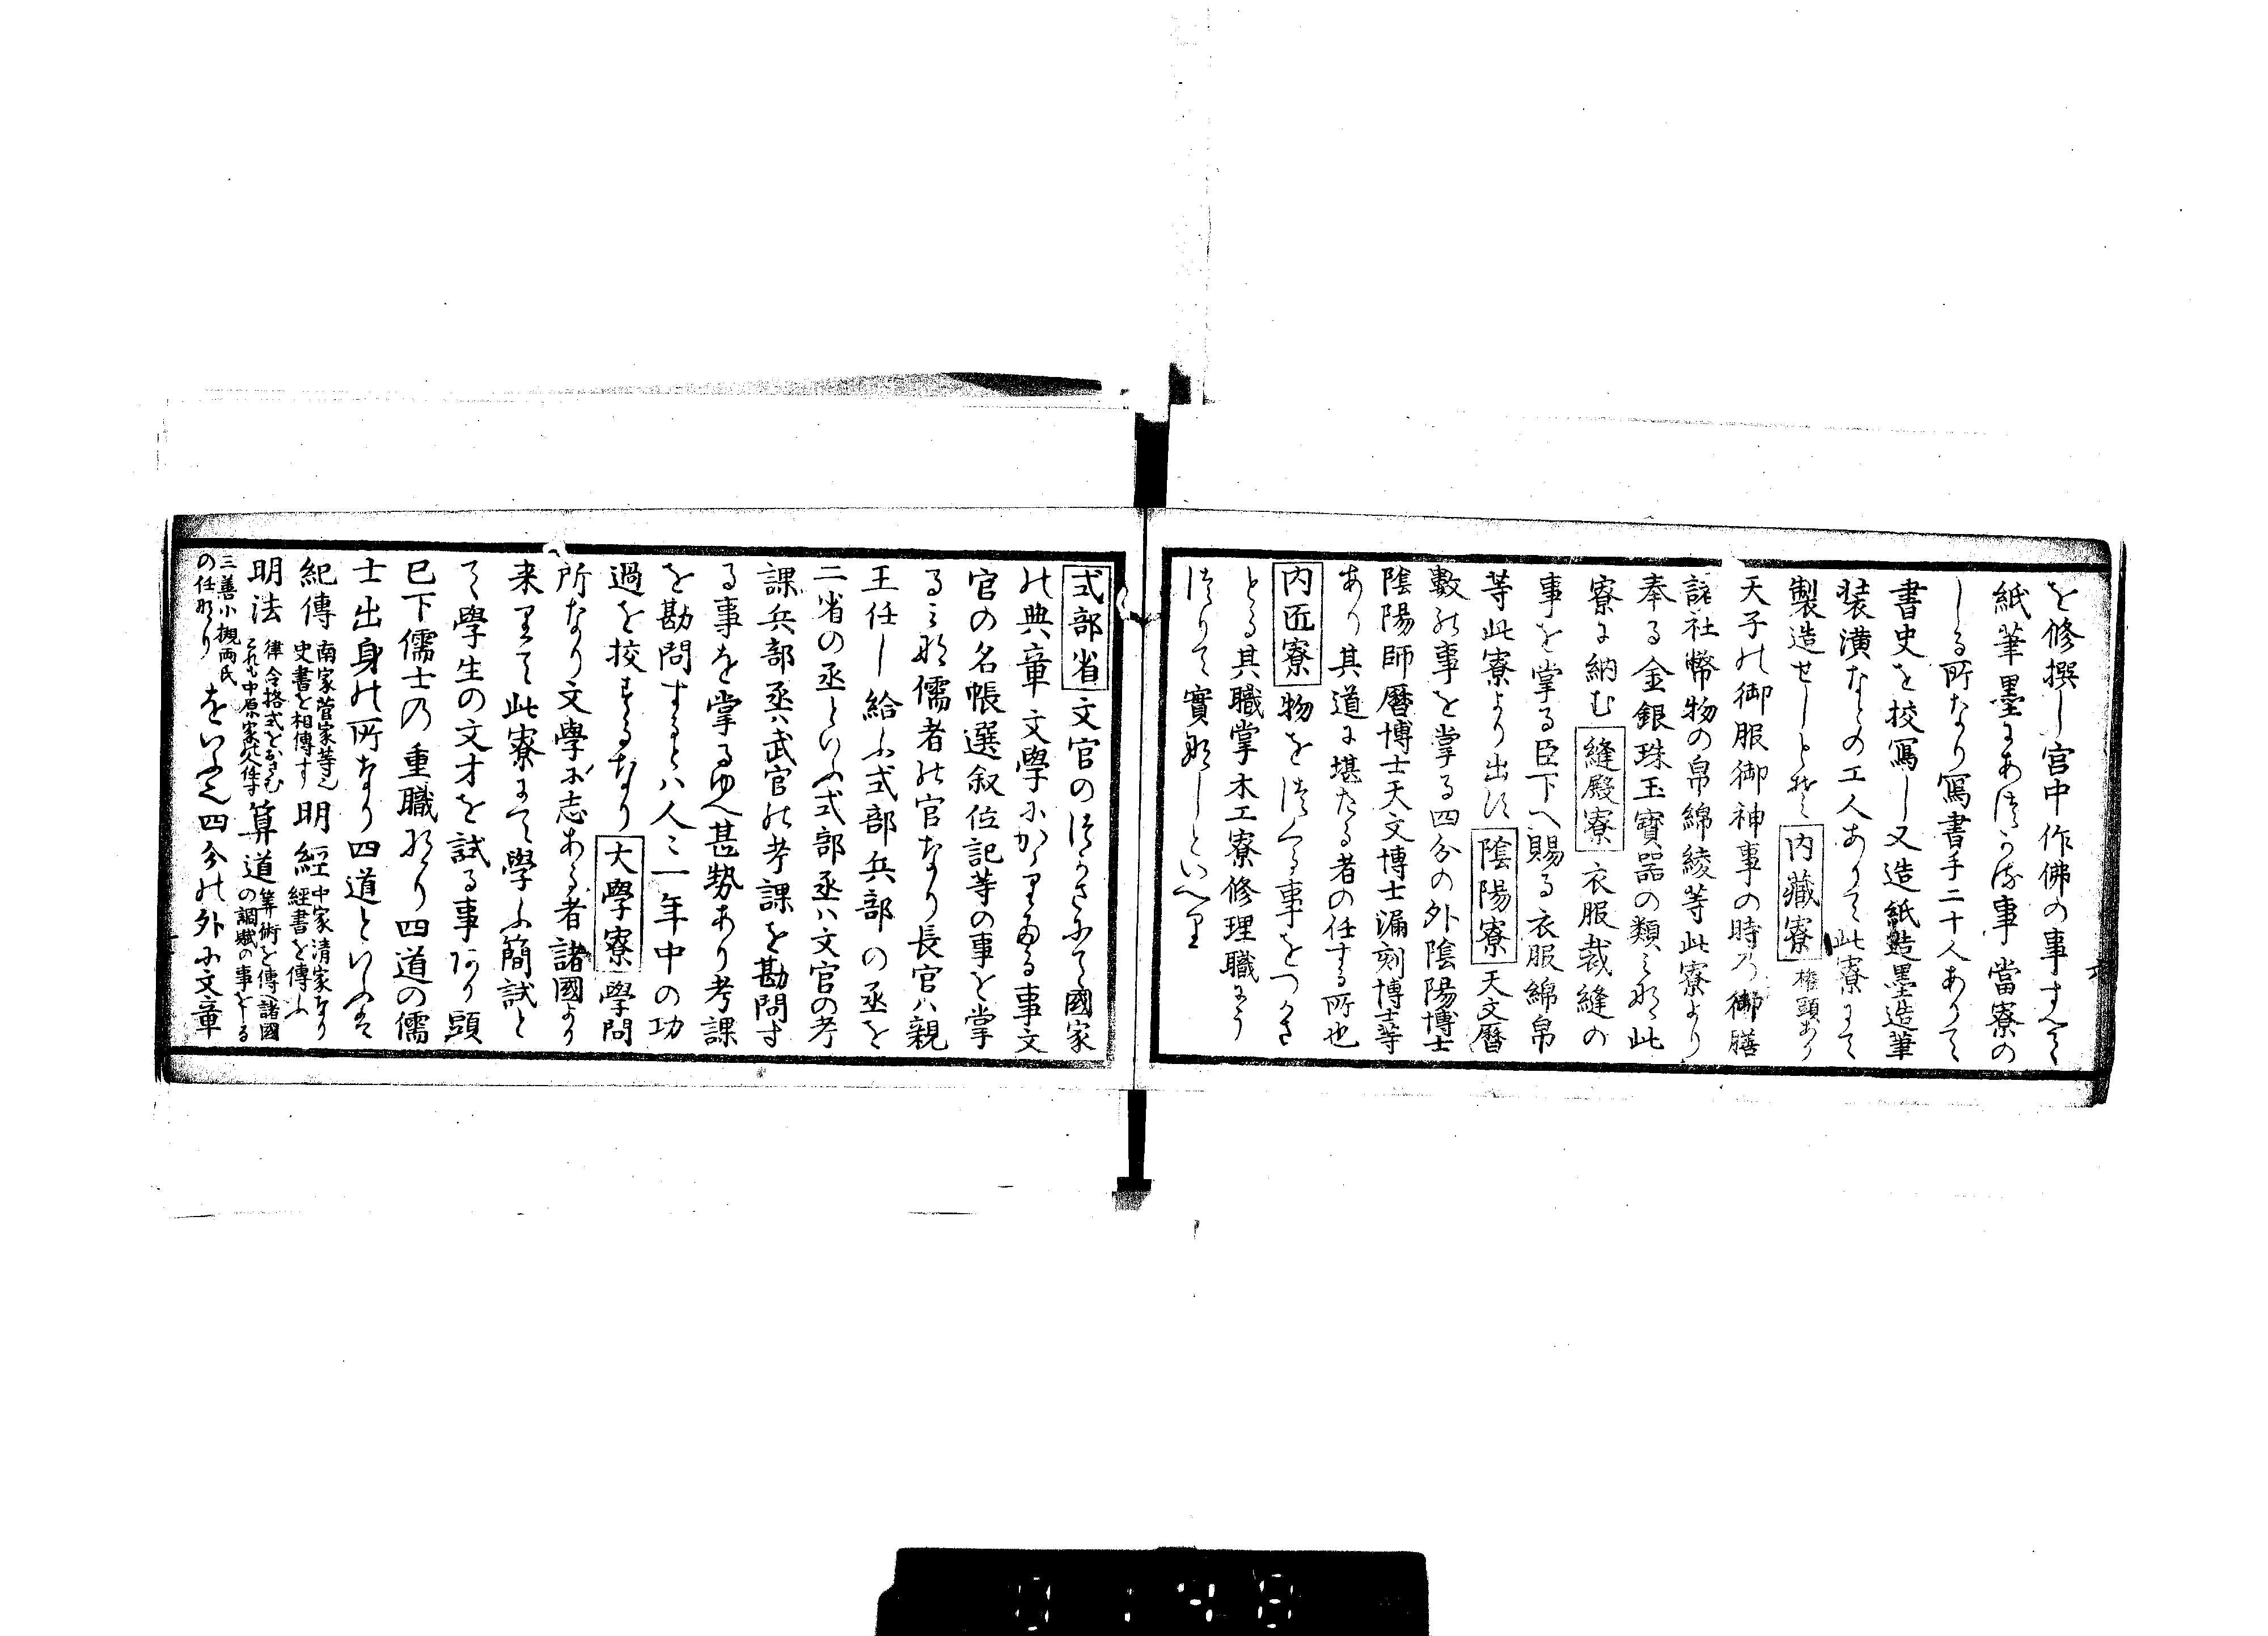 を修撰し官中作佛の事すへて
紙筆墨にあつかる事當寮の
しる所なり寫書手二十人ありて
書史を校寫し又造紙造墨造筆
装潢なとの工人ありて此寮にて
製造せしとそ 内藏寮 権頭あり
天子の御服御神事の時乃御膳
諸社幣物の帛綿綾等此寮より
奉る金銀珠玉寶器の類みな此
寮に納む 縫殿寮 衣服裁縫の
事を掌る臣下へ賜る衣服綿帛
等此寮より出す 陰陽寮 天文暦
數の事を掌る四分の外陰陽博士
陰陽師暦博士天文博士漏刻博士等
あり其道に堪たる者の任する所也
内匠寮 物をつくる事をつかさ
とる其職掌木工寮修理職にう
つりて實なしといへり
式部省 文官のつかさにて國家
の典章文學にかゝりたる事文
官の名帳選叙位記等の事を掌
るみな儒者の官なり長官ハ親
王任し給ふ式部兵部の丞を
二省の丞といふ式部丞ハ文官の考
課兵部丞ハ武官の考課を勘問す
る事を掌るゆへ甚勢あり考課
を勘問するとハ人々一年中の功
過を校するなり 大學寮 學問
所なり文學に志ある者諸國より
来りて此寮にて学ふ簡試と
て學生の文才を試る事あり頭
已下儒士の重職なり四道の儒
士出身の所なり四道といふは
紀傳 南家菅家等也 史書を相傳す 明經 中家清家なり 經書を傳ふ
明法 律令格式をおさむ これも中原家 算道 算術を傳諸國 の調賦の事をしる
三善小槻両氏 の任なり をいふ也四分の外に文章